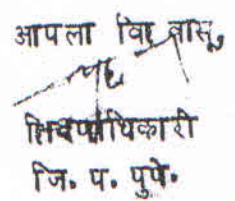 आपला विश्वासू,
शिक्षणाधिकारी
जि. प. पुणे.